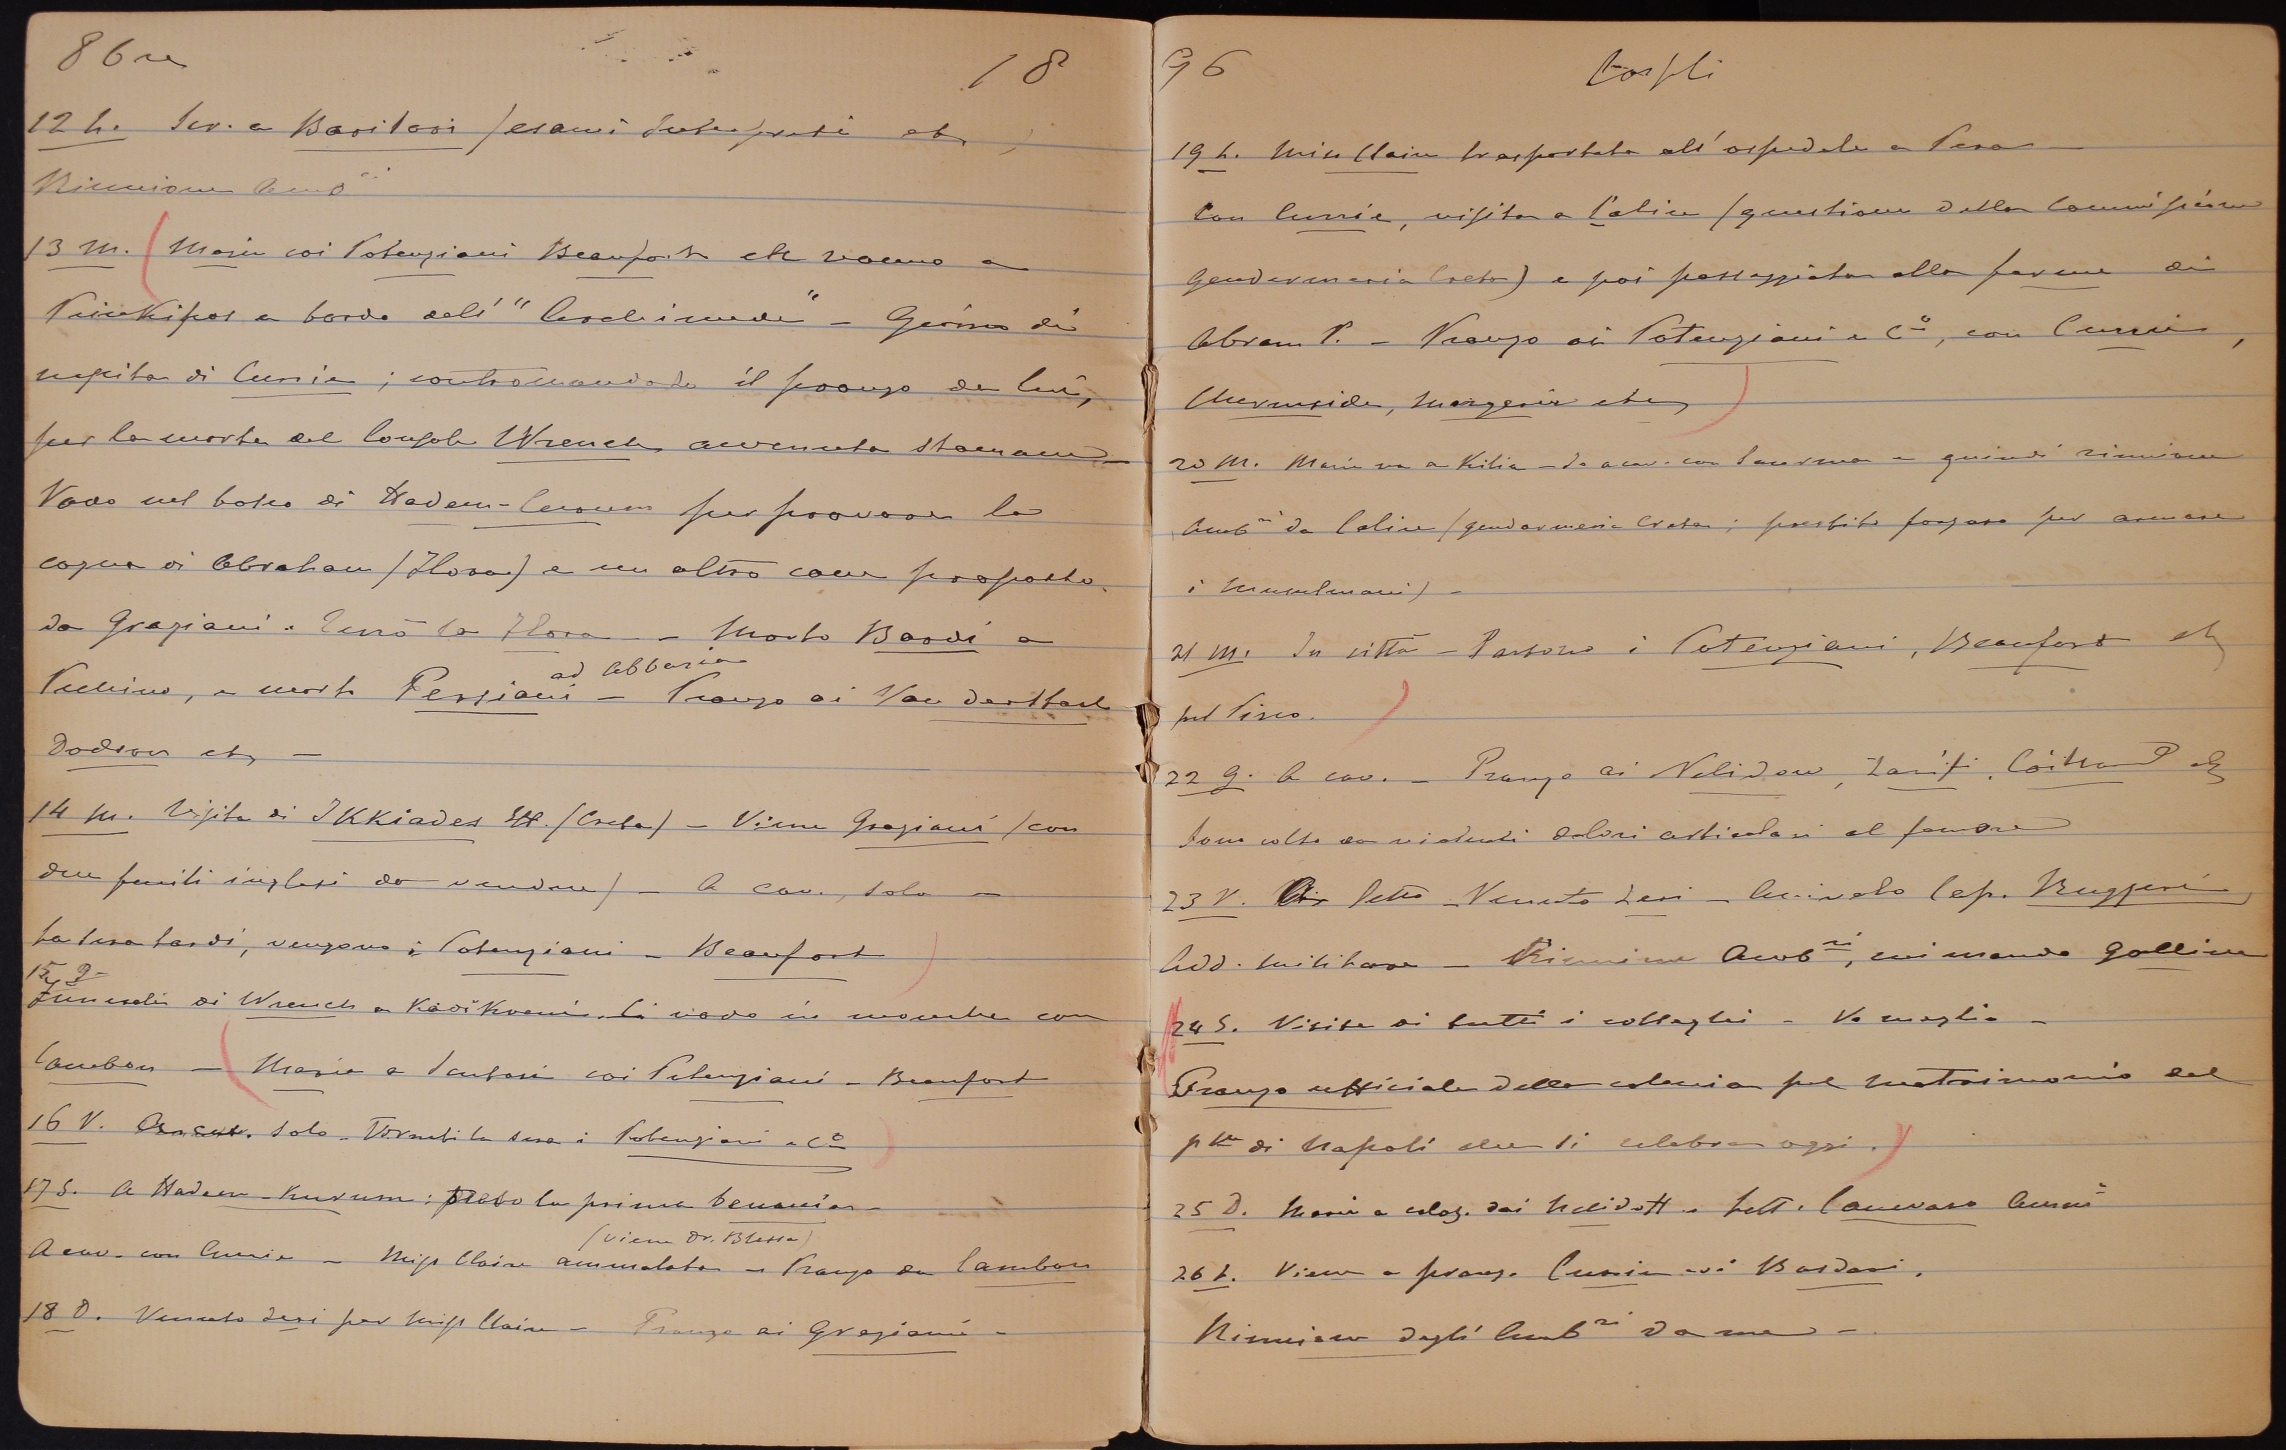 8bre 18
12 L. Scr. a Basitori (esami Interpreti etc)
Riunione Amb.ri
13 M. (Maria coi Potenziani Beaufort etc vanno a
Prinkipos a bordo dell' "Archimede" - Giorno di
nascita di Currie; contromandato il pranzo da lui,
per la morte del Console Wrench avvenuta stamane -
Vado nel bosco di Hadem-Couroum per provare la
cagna di Abraham (Flora) e un altro cane proposto
da Graziani. Terrò la Flora - Morto Bardi a
Pechino, e morto Persiani ad Abbazia - Pranzo ai Van der Staal
Dodson etc -
14 M. Visita di IKKiades Eff. (Creta) - Viene Graziani (con
due fucili inglesi da vendere) - A cav., solo -
La sera tardi, vengono i Potenziani - Beaufort
15 G.
Funerali di Wrench a Kadi Kueni. Ci vado in mouche con
Cambon - (Maria a Scutari coi Potenziani - Beaufort
16 V. A cav. solo. Tornati la sera i Potenziani e C.o
17 S. A Hadem-Kurum: la prima beccaccia -
A cav. con Currie - Miss Claire ammalata (viene Dr. Blessa) - Pranzo da Cambon
18 D. Venuto Zeri per Miss Claire - Pranzo ai Graziani -
96 Cospli
19 L. Miss Claire trasportata all' ospedale a Pera -
Con Currie, visita a Calice (questione della Commissione
Gendarmeria Creta) e poi passeggiata alla ferme di
Abram P. - Pranzo ai Potenziani e C.o, con Currie,
Chermside, Mangerie etc)
20 M. Maria va a Kilia - Io a cav. con - quindi riunione
Amb.ri da Calice (gendarmeria Creta; prestito forzoso per armare
i Musulmani) -
21 M. In città - Partono i Potenziani, Beaufort etc
pel Pireo. )
22 G. A cav. - Pranzo ai Nelidow, Zarifi, etc
Sono colto da violenti dolori articolari al femore
23 V. A letto - Venuto Zeri - Arrivato Cap. Ruggeri
Add. militare - Riunione Amb.ri, mi manda Galline
24 S. Visite di tutti i colleghi - Va meglio -
Pranzo ufficiale della colonia pel matrimonio del
p.pe di Napoli che si celebra oggi. )
25 D. Maria a colaz. dai Nelidoff - Lett. Canevaro Amm.o
26 L. Viene a pranzo Currie coi Bardari.
Riunione degli Amb.ri da me -